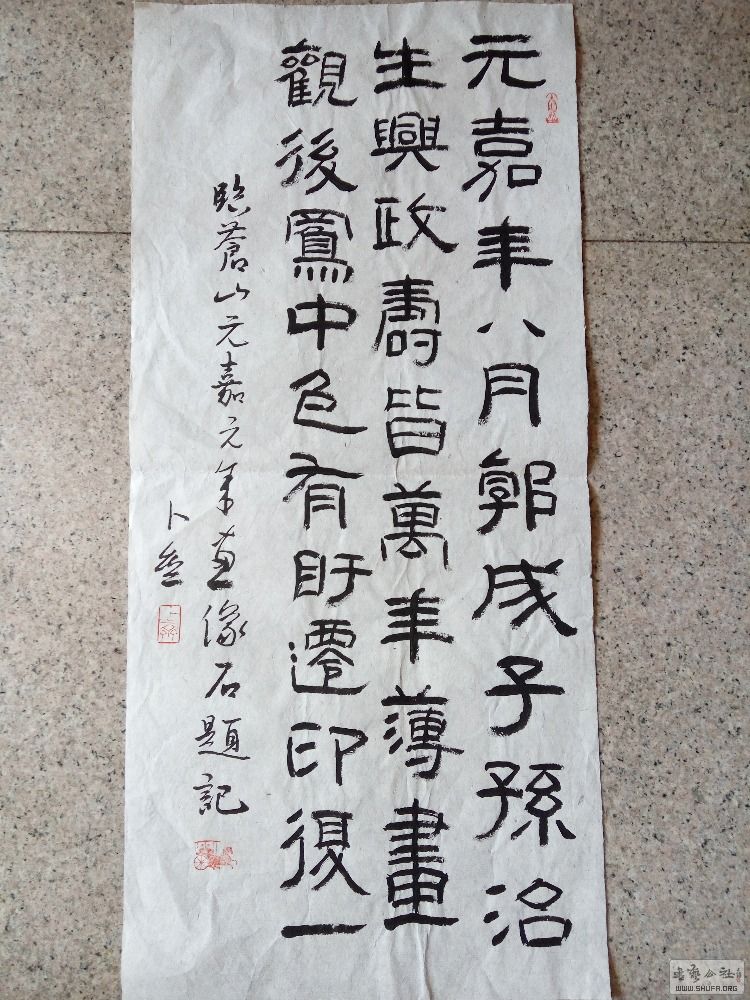 元嘉年八月郭成子孫治
生興政壽皆萬年薄畫
觀後鳳中色有盱遷印復一
臨蒼山元嘉元年畫像石題記
卜
WWW.SHUFA.ORG